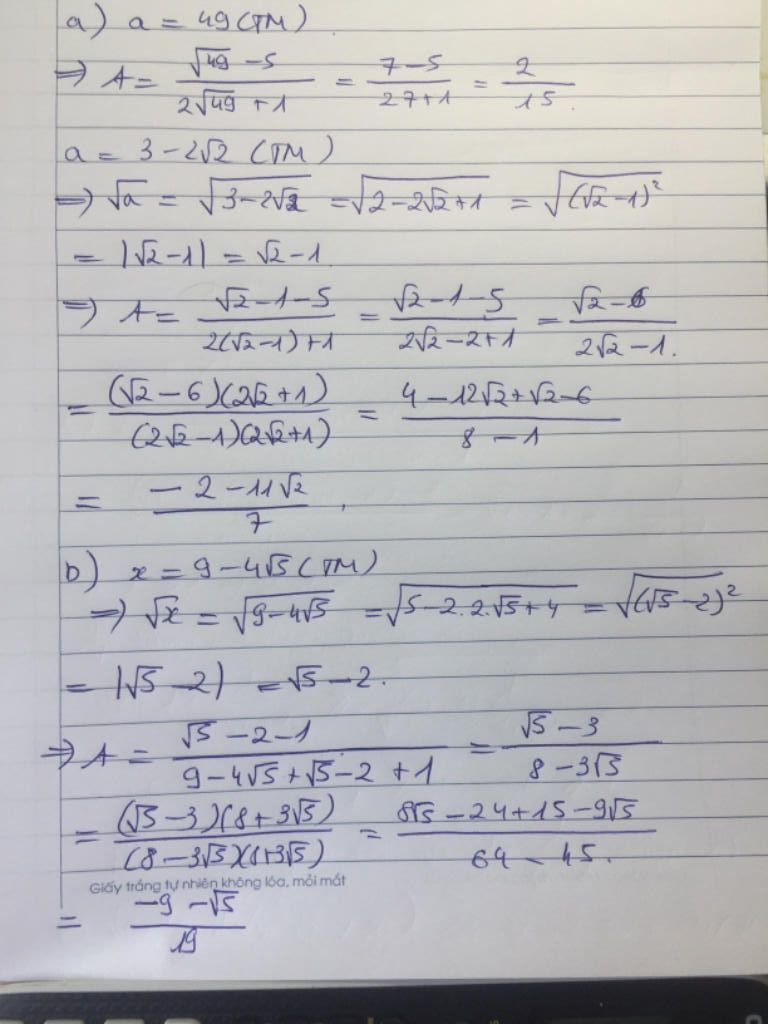 a) a = 49 (TM)
=> A = (√49 - 5)/(2√49 + 1) = (7 - 5)/(2 7 + 1) = 2/15.
a = 3 - 2√2 (TM)
=> √a = √(3 - 2√2) = √(2 - 2√2 + 1) = √((√2 - 1)²)
= |√2 - 1| = √2 - 1
=> A = (√2 - 1 - 5)/(2(√2 - 1) + 1) = (√2 - 1 - 5)/(2√2 - 2 + 1) = (√2 - 6)/(2√2 - 1).
= ((√2 - 6)(2√2 + 1))/((2√2 - 1)(2√2 + 1)) = (4 - 12√2 + √2 - 6)/(8 - 1)
= (- 2 - 11√2)/7.
b) x = 9 - 4√5 (TM)
=> √x = √(9 - 4√5) = √(5 - 2.2.√5 + 4) = √((√5 - 2)²)
= |√5 - 2| = √5 - 2.
=> A = (√5 - 2 - 1)/(9 - 4√5 + √5 - 2 + 1) = (√5 - 3)/(8 - 3√5)
= ((√5 - 3)(8 + 3√5))/((8 - 3√5)(8 + 3√5)) = (8√5 - 24 + 15 - 9√5)/(64 - 45).
Giấy trắng tự nhiên không lóa, mỏi mắt
= (-9 - √5)/19